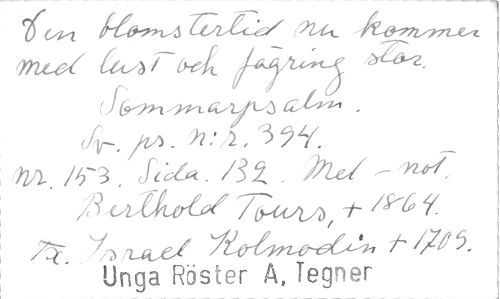 Den blomstertid nu kommer
med lust och fägring stor.
Sommarpsalm.
Sv. ps. n:r. 394.
nr. 153. Sida. 132. Mel - not.
Berthold Tours, + 1864.
Tx. Israel Kolmodin + 1709.
Unga Röster A, Tegner